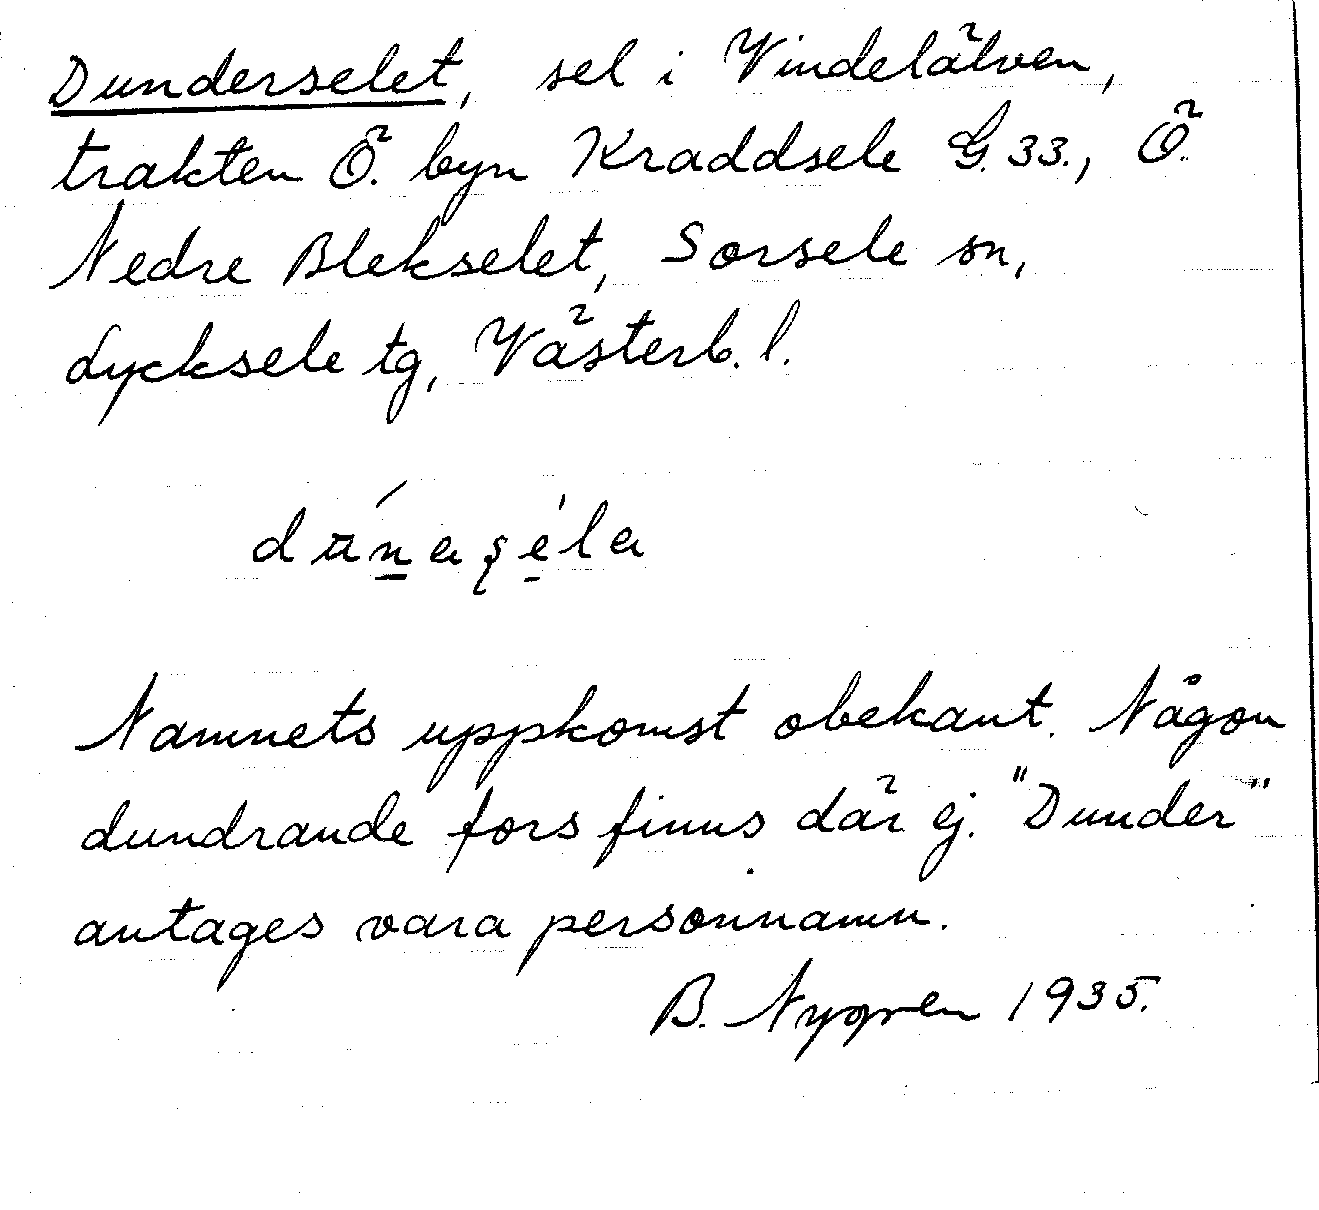 Dunderselet, sel i Vindelälven,
trakten Ö. byn Kraddsele G. 33., Ö.
Nedre Blekselet, Sorsele sn,
Lycksele tg, Västerb. l.
Namnets uppkomst obekant. Någon
dundrande fors finns där ej. "Dunder"
antages vara personnamn.
B. Nygren 1935.